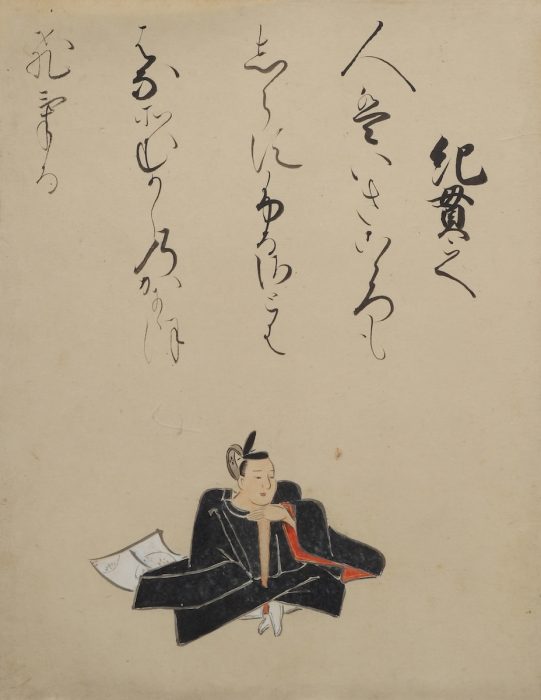 紀貫之
人はいさこゝろも
しらすふるさとは
はなそむかしのかににほ
ひける